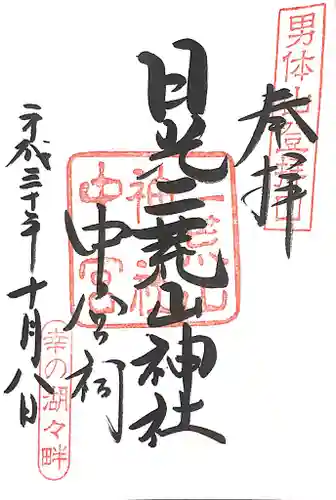 奉拝
男体山登拝口
日光二荒山神社
中宮祠
二荒山神社中宮祠
平成三十年十月八日
幸の湖々畔